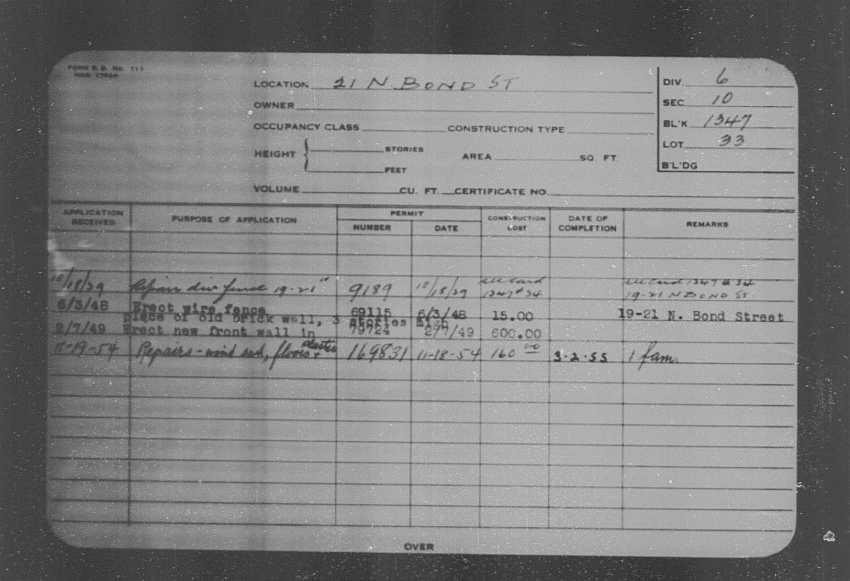 FORM B. B. NO. 111
LOCATION 21 N. BOND ST
OWNER
OCCUPANCY CLASS CONSTRUCTION TYPE
HEIGHT STORIES
FEET
AREA SQ. FT
VOLUME CU. FT. CERTIFICATE NO.
DIV. 6
SEC. 10
BL'K 1347
LOT 33
B'L'DG
APPLICATION RECEIVED PURPOSE OF APPLICATION PERMIT NUMBER DATE CONSTRUCTION COST DATE OF COMPLETION REMARKS
10/18/29 Repair div fence 19-21" 9189 10/18/29 see card 1347#34 see card 1347#34 19-21 N BOND ST
6/3/48 Erect wire fence 69115 6/3/48 15.00 19-21 N. Bond Street
piece of old brick wall, 3 stories high
2/7/49 Erect new front wall in 79724 2/7/49 600.00
11-19-54 Repairs - wind sash, floors + plaster 169831 11-18-54 160 00 3-2-55 1 fam.
OVER